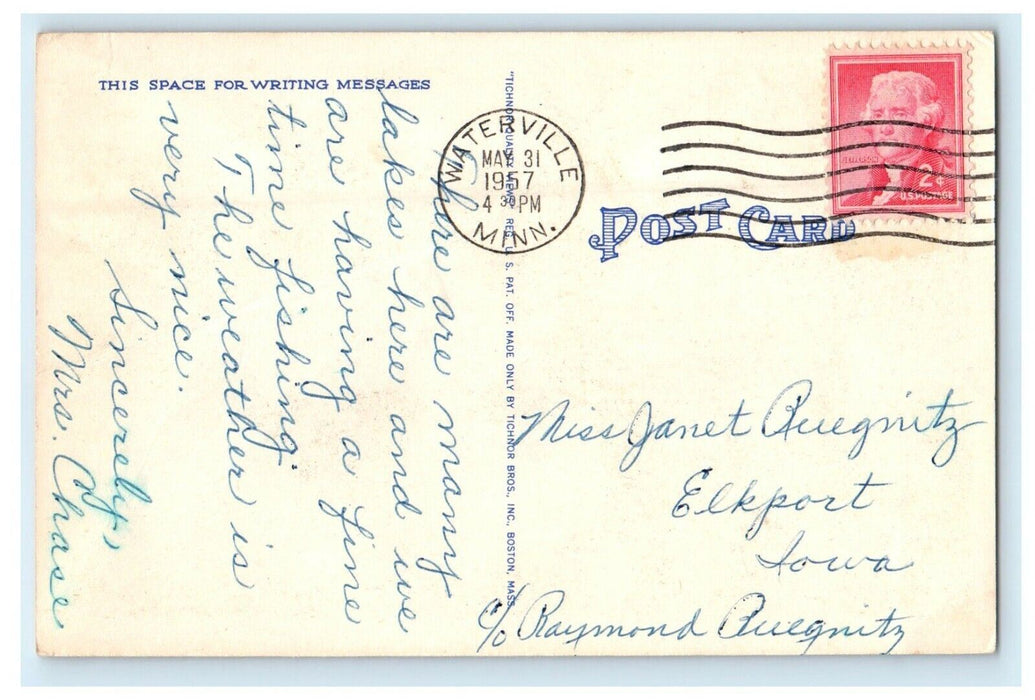 THIS SPACE FOR WRITING MESSAGES
There are many
lakes here and we
are having a fine
time fishing.
The weather is
very nice.
Sincerely,
Mrs. Chase
"TICHNOR QUALITY VIEWS," REG. U. S. PAT. OFF. MADE ONLY BY TICHNOR BROS., INC., BOSTON, MASS.
WATERVILLE
MAY 31
1957
4 30 PM
MINN.
JEFFERSON
2¢
U.S. POSTAGE
POST CARD
Miss Janet Ruegnitz
Elkport
Iowa
c/o Raymond Ruegnitz